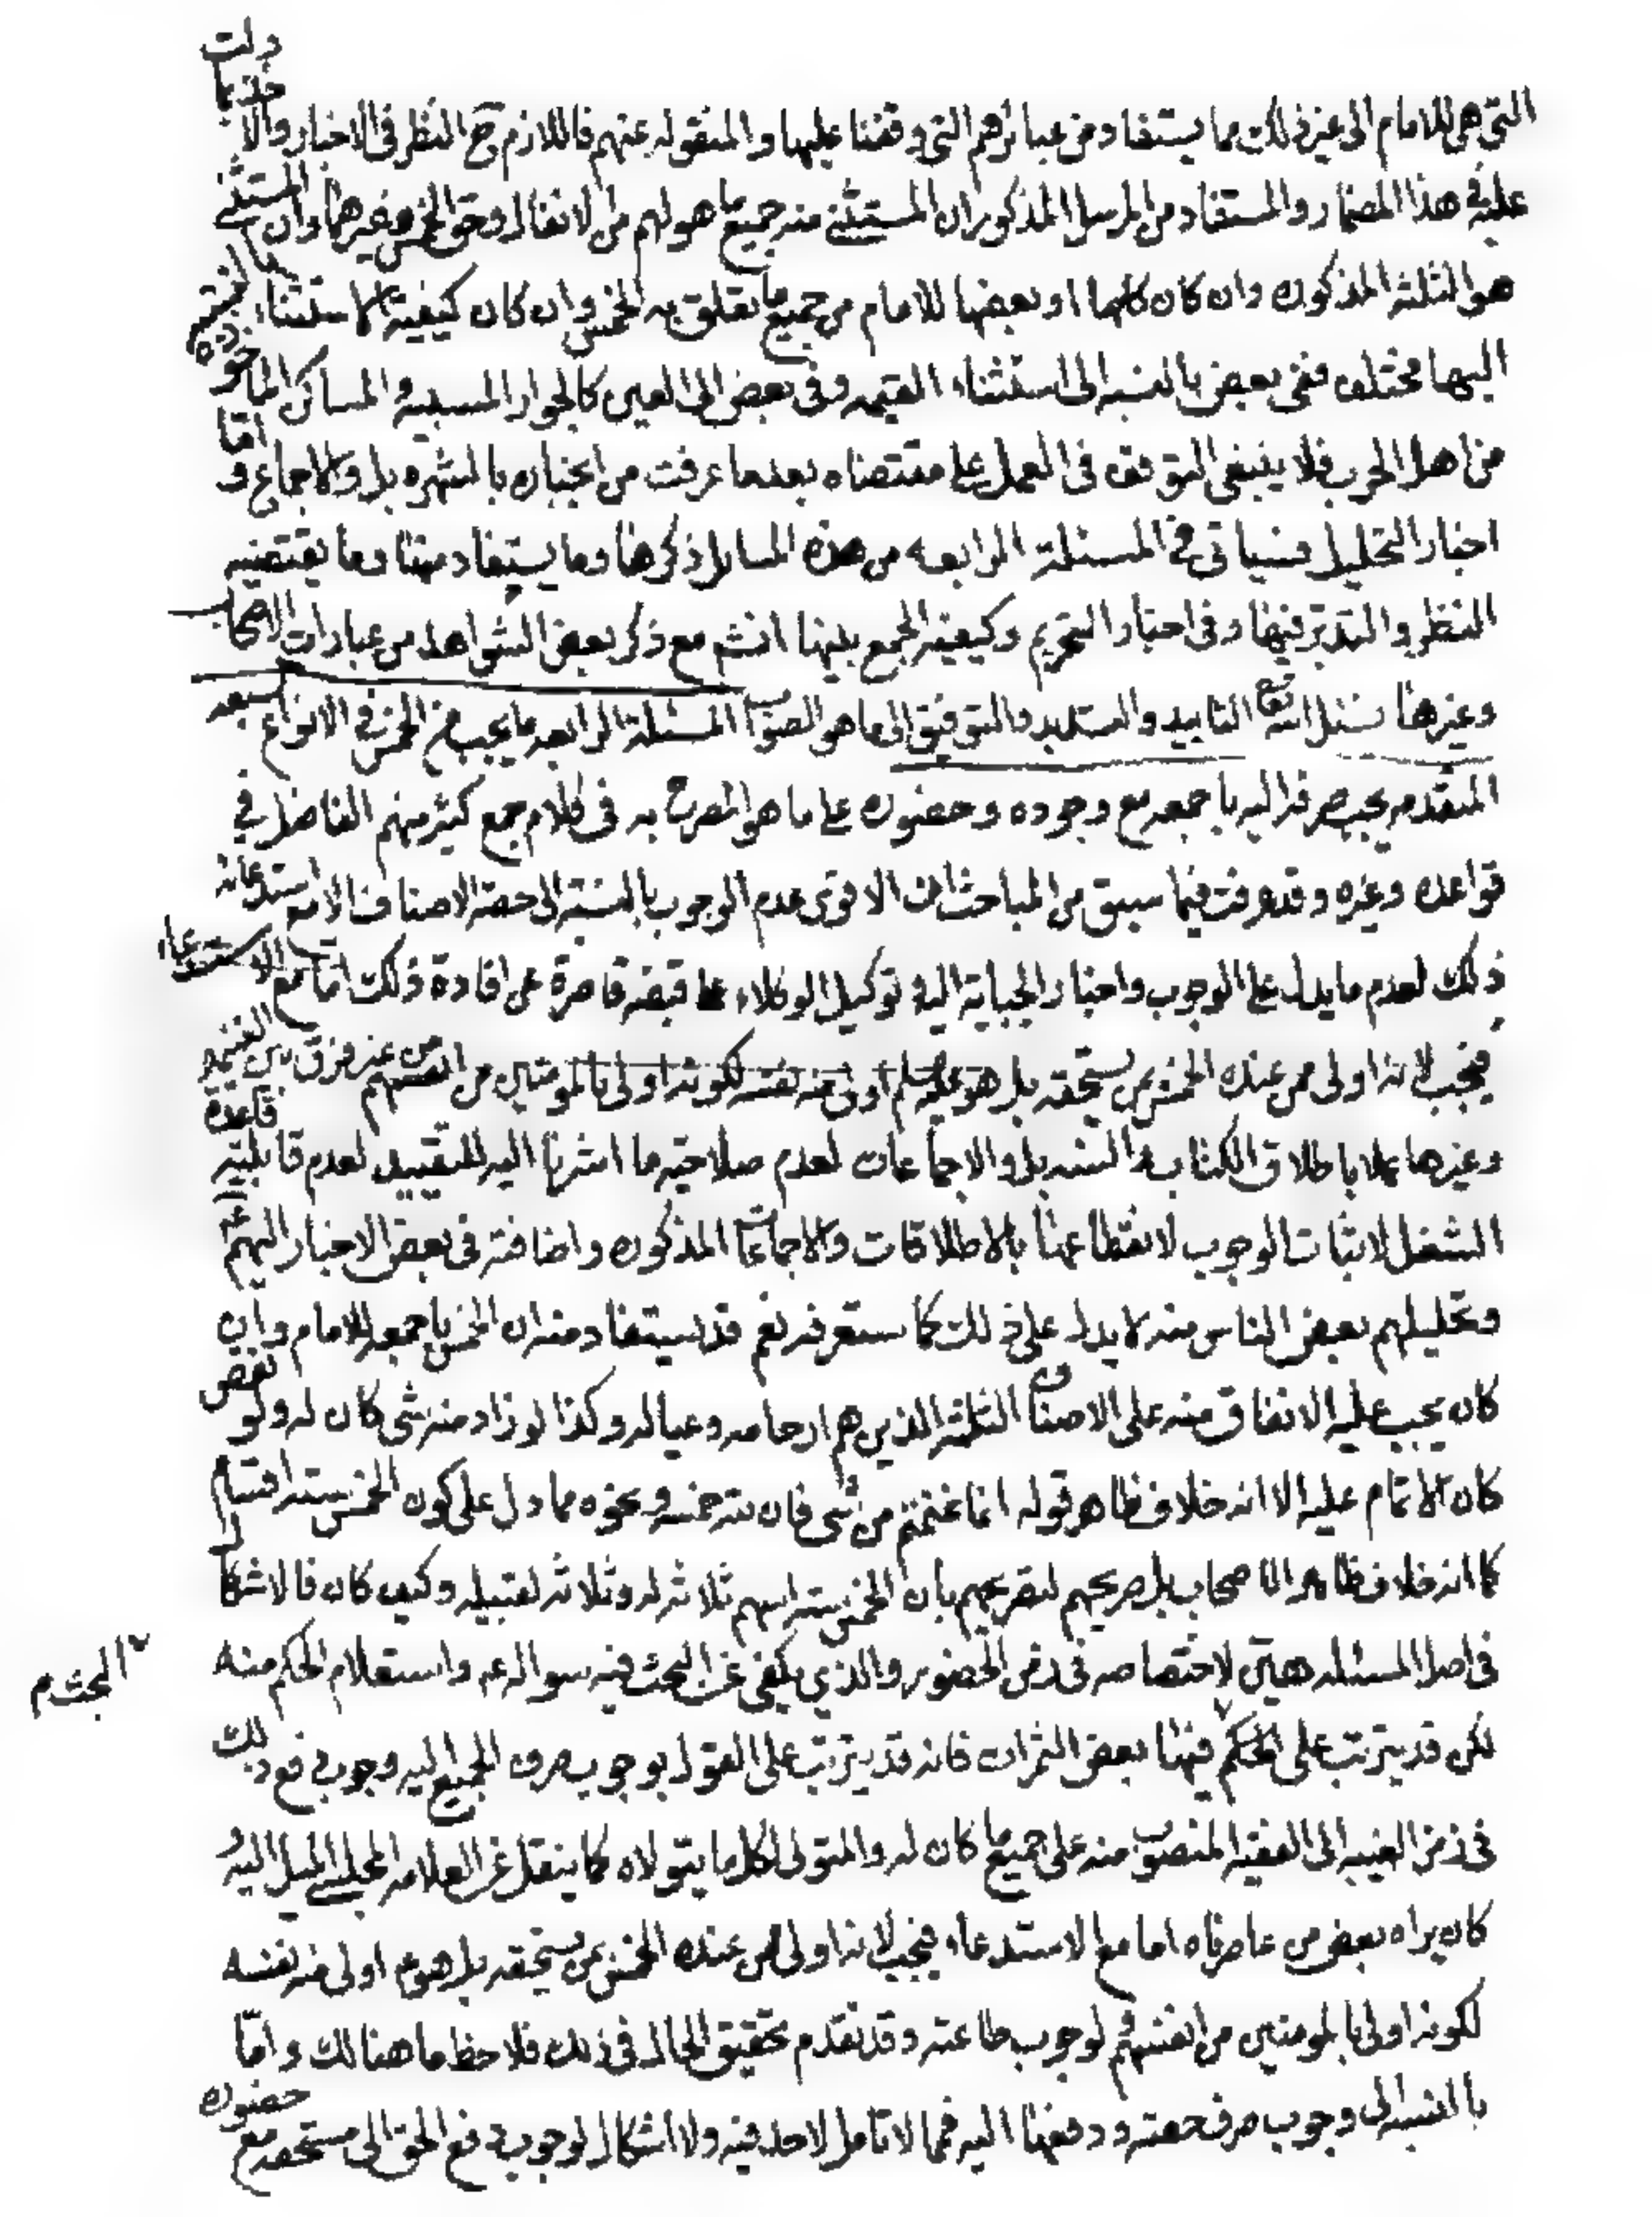 التى هى للامام الى غير ذلك مما يستفاد من عبائرهم التى وقفنا عليها والمنقوله عنهم فاللازم ح النظر فى الاخبار والاخذ بما دلت
عليه فى هذا المضمار والمستفاد من المرسل المذكور ان المستثنى منه جميع ما هو لهم من الانفال وحق الخمس وغيرهما وان المستثنى
هو الثلثة المذكوره وان كان كلها او بعضها للامام من جميع ما تعلق به الخمس وان كان كيفية الاستثناء بالنسبة
اليها مختلف ففى بعض بالنسبه الى استثناء القيمه وفى بعض الى العين كالجوار المسبية والمساكن الماخوذه
من اهل الحرب فلا ينبغى التوقف فى العمل على مقتضاه بعدما عرفت من انجباره بالشهره بل والاجماع واما
اخبار التحليل فسياتى فى المسئلة الرابعه من هذه المسائل ذكرها وما يستفاد منها وما يقتضيه
النظر والتدبر فيها وفى اخبار التحريم وكيفية الجمع بينها انشم مع ذكر بعض الشواهد من عبارات الاصحاب
وغيرها نسئل الله تع التاييد والتسديد والتوفيق الى ما هو الصواب المسئلة الرابعه ما يجب من الخمس فى الانواع السبعه
المتقدمه يجب صرفه اليه باجمعه مع وجوده وحضوره على ما هو المصرح به فى كلام جمع كثير منهم الفاضل في
قواعده وغيره وقد عرفت فيما سبق من المباحث ان الاقوى عدم الوجوب بالنسبة الى حصة الاصناف الا مع استدعائه
ذلك لعدم ما يدل على الوجوب واخبار الجباية اليه وتوكيل الوكلاء على قبضه قاصرة عن افادة ذلك اما مع الاستدعاء
فيجب لانه اولى ممن عنده الخمس بمن يستحقه بل هو اولى منه نفسه لكونه اولى بالمومنين من انفسهم من غير فرق بين الغنيمه
وغيرها عملا باطلاق الكتاب والسنه بل والاجماعات لعدم صلاحية ما اشرنا اليه للتقييد لعدم قابلية قاعدة
الشغل لاثبات الوجوب لانقطاعها بالاطلاقات والاجماعات المذكوره واضافته فى بعض الاخبار اليهم
وتحليلهم بعض الناس منه لا يدل على ذلك كما ستعرفه نعم قد يستفاد منه ان الخمس باجمعه للامام وان
كان يجب عليه الانفاق منه على الاصناف الثلثه الذين هم ارحامه وعياله وكذا لو زاد منه شى كان له ولو نقص
كان الاتمام عليه الا انه خلاف ظاهر قوله انما غنمتم من شى فان لله خمسه ونحوه مما دل على كون الخمس ستة اقسام
كما انه خلاف ظاهر الاصحاب بل صريحهم لتصريحهم بان الخمس ستة اسهم ثلاثه له وثلاثه لقبيله وكيف كان فالاشكال
فى اصل المسئله هين لاختصاصه فى زمن الحضور والذي يكفى عن البحث فيه سواله عم واستعلام الحكم منه
لكن قد يترتب على الحكم فيها بعض الثمرات فانه قد يترتب على القول بوجوب صرف الجميع اليه وجوب دفع ذلك
البحث م
فى زمن الغيبه الى الفقيه المنصوب منه على جميع ما كان له والمتولى لكل ما يتولاه كما ينقل عن العلامه المجلسى الميل اليه و
كان يراه بعض من عاصرناه اما مع الاستدعاء فيجب لانه اولى ممن عنده الخمس بمن يستحقه بل هو عم اولى منه نفسه
لكونه اولى بالمومنين من انفسهم لوجوب طاعته وقد تقدم تحقيق الحال فى ذلك فلاحظ ما هنالك واما
بالنسبه الى وجوب صرف حصته ودفعها اليه فمما لا تامل لاحد فيه ولا اشكال لوجوب دفع الحق الى مستحقه مع حضوره